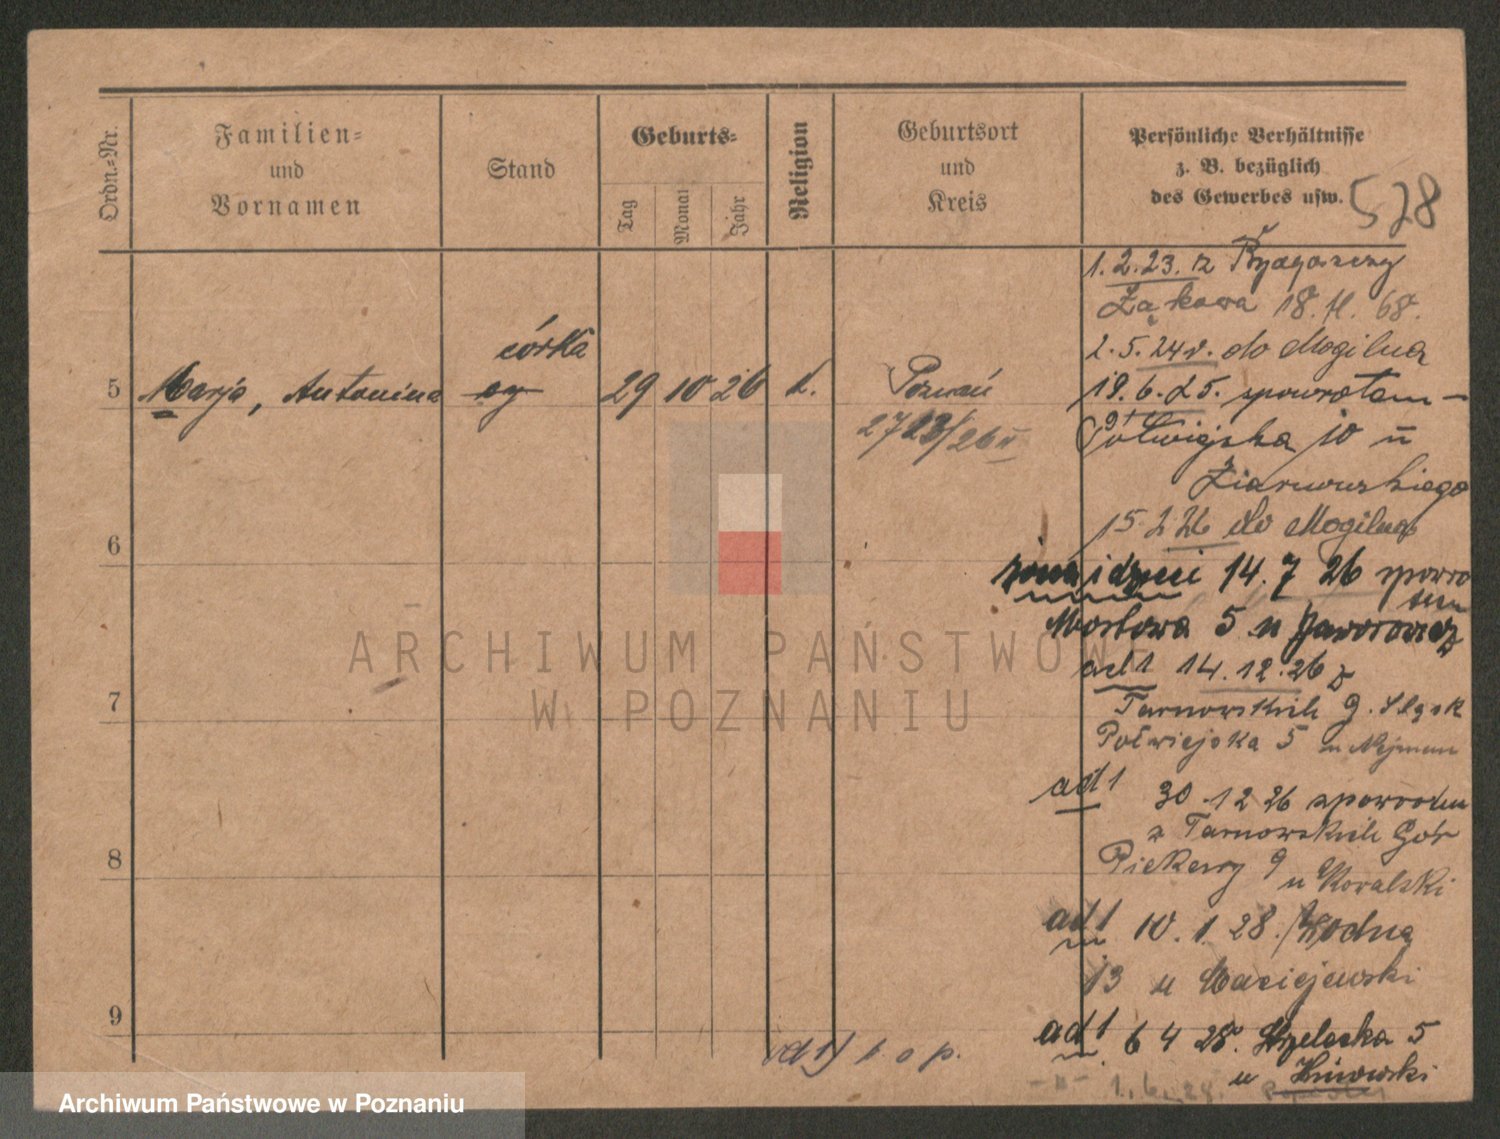 Ordn.-Nr.
Familien-
und
Vornamen
Stand
Geburts-
Tag
Monat
Jahr
Religion
Geburtsort
und
Kreis
Persönliche Verhältnisse
z. B. bezüglich
des Gewerbes usw.
528
1.2.23. z Bydgoszczy
Łąkowa 18.
2.5.24r. do Mogilna
córka
5 Marja, Antonina 29 10 26 k. Poznań
19.6.25. spowrotem
2723/26 II
Półwiejska 10 u
15.2.26 do Mogilna
6
żona i dzieci 14.7 26 spowro
tem
Mostowa 5 u Jaworowicz
ARCHIWUM PAŃSTWOWE
W POZNANIU
ad 1 14.12.26 z
7
Tarnowskich G. Śląsk
Półwiejska 5 u Nejman
ad 1 30.12 26 spowrotem
z Tarnowskich Gór
8
Piekary 9 u Kowalski
ad 1 10.1 28. Wodna
13 u Maciejewski
9
ad 1 6 4 28. Strzelecka 5
ad 1) k. o p.
u
-"- 1.6.28.
Archiwum Państwowe w Poznaniu